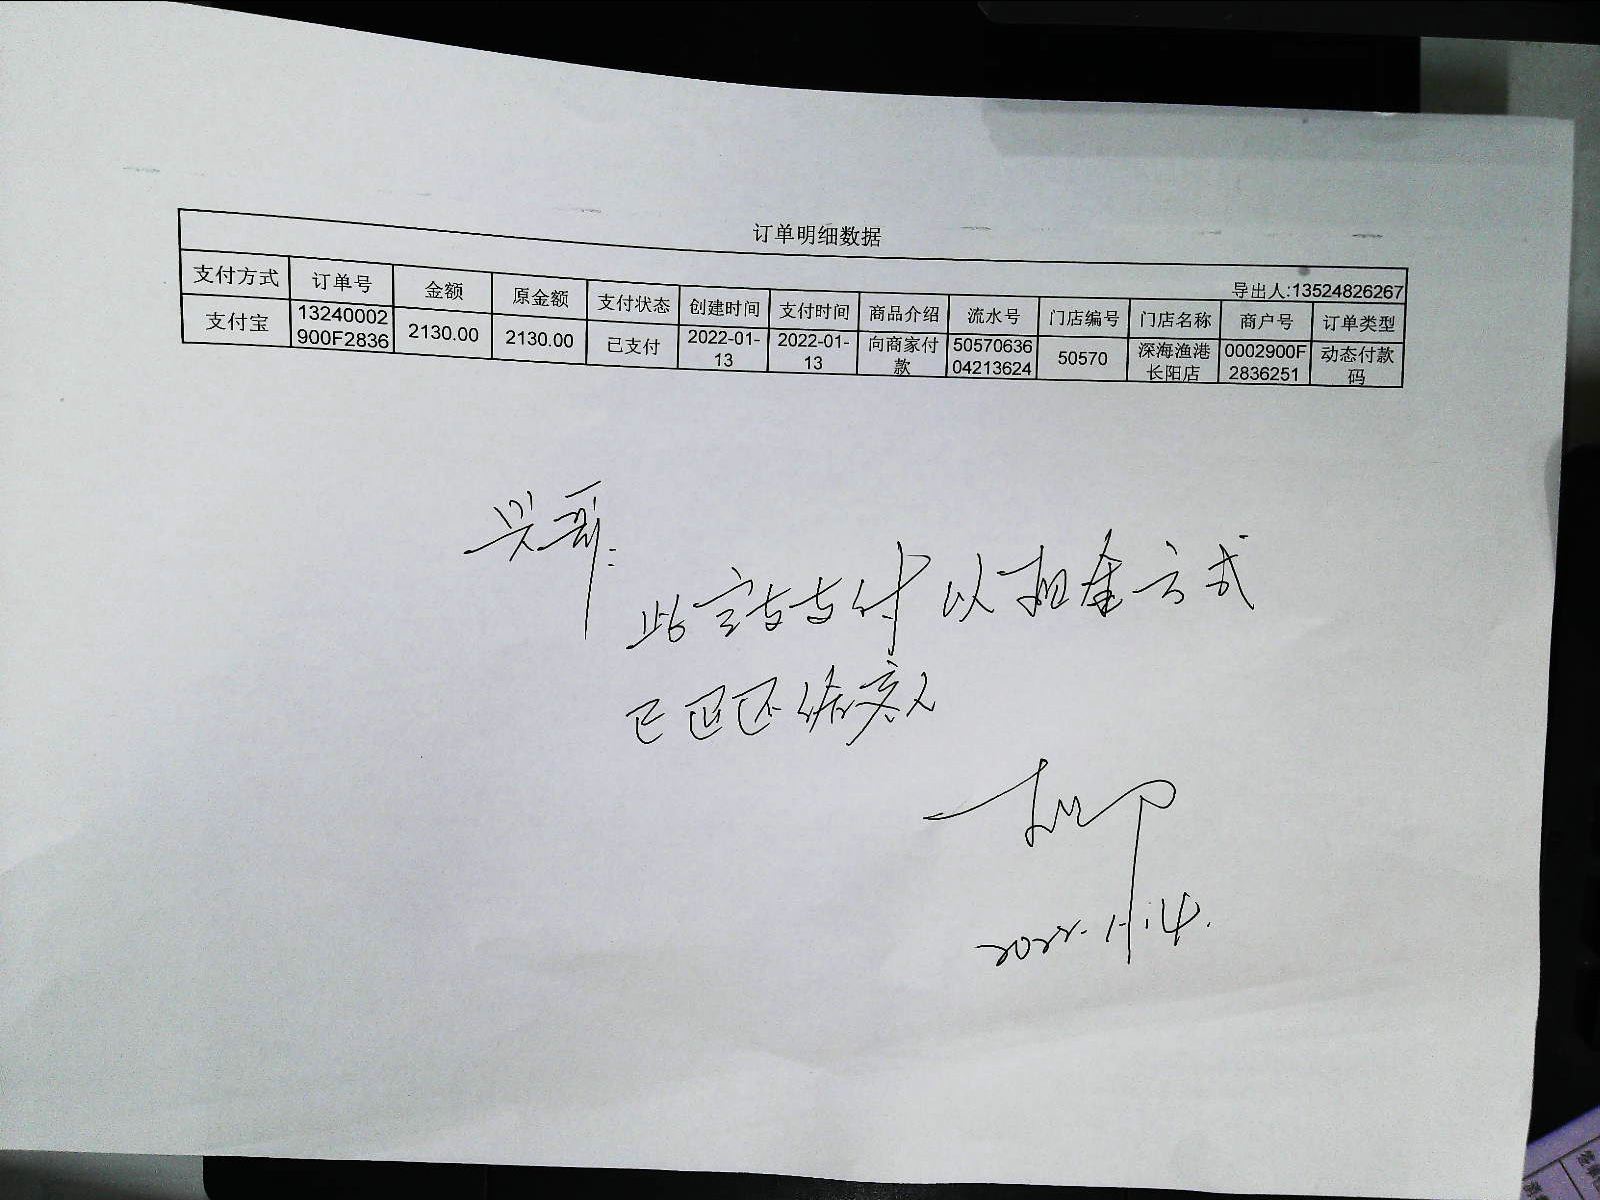 订单明细数据
导出人:13524826267
支付方式 订单号 金额 原金额 支付状态 创建时间 支付时间 商品介绍 流水号 门店编号 门店名称 商户号 订单类型
支付宝 13240002900F2836 2130.00 2130.00 已支付 2022-01-13 2022-01-13 向商家付款 5057063604213624 50570 深海渔港长阳店 0002900F2836251 动态付款码
兴哥:
此 支付以租金方式
已 还给
2022.1.14.